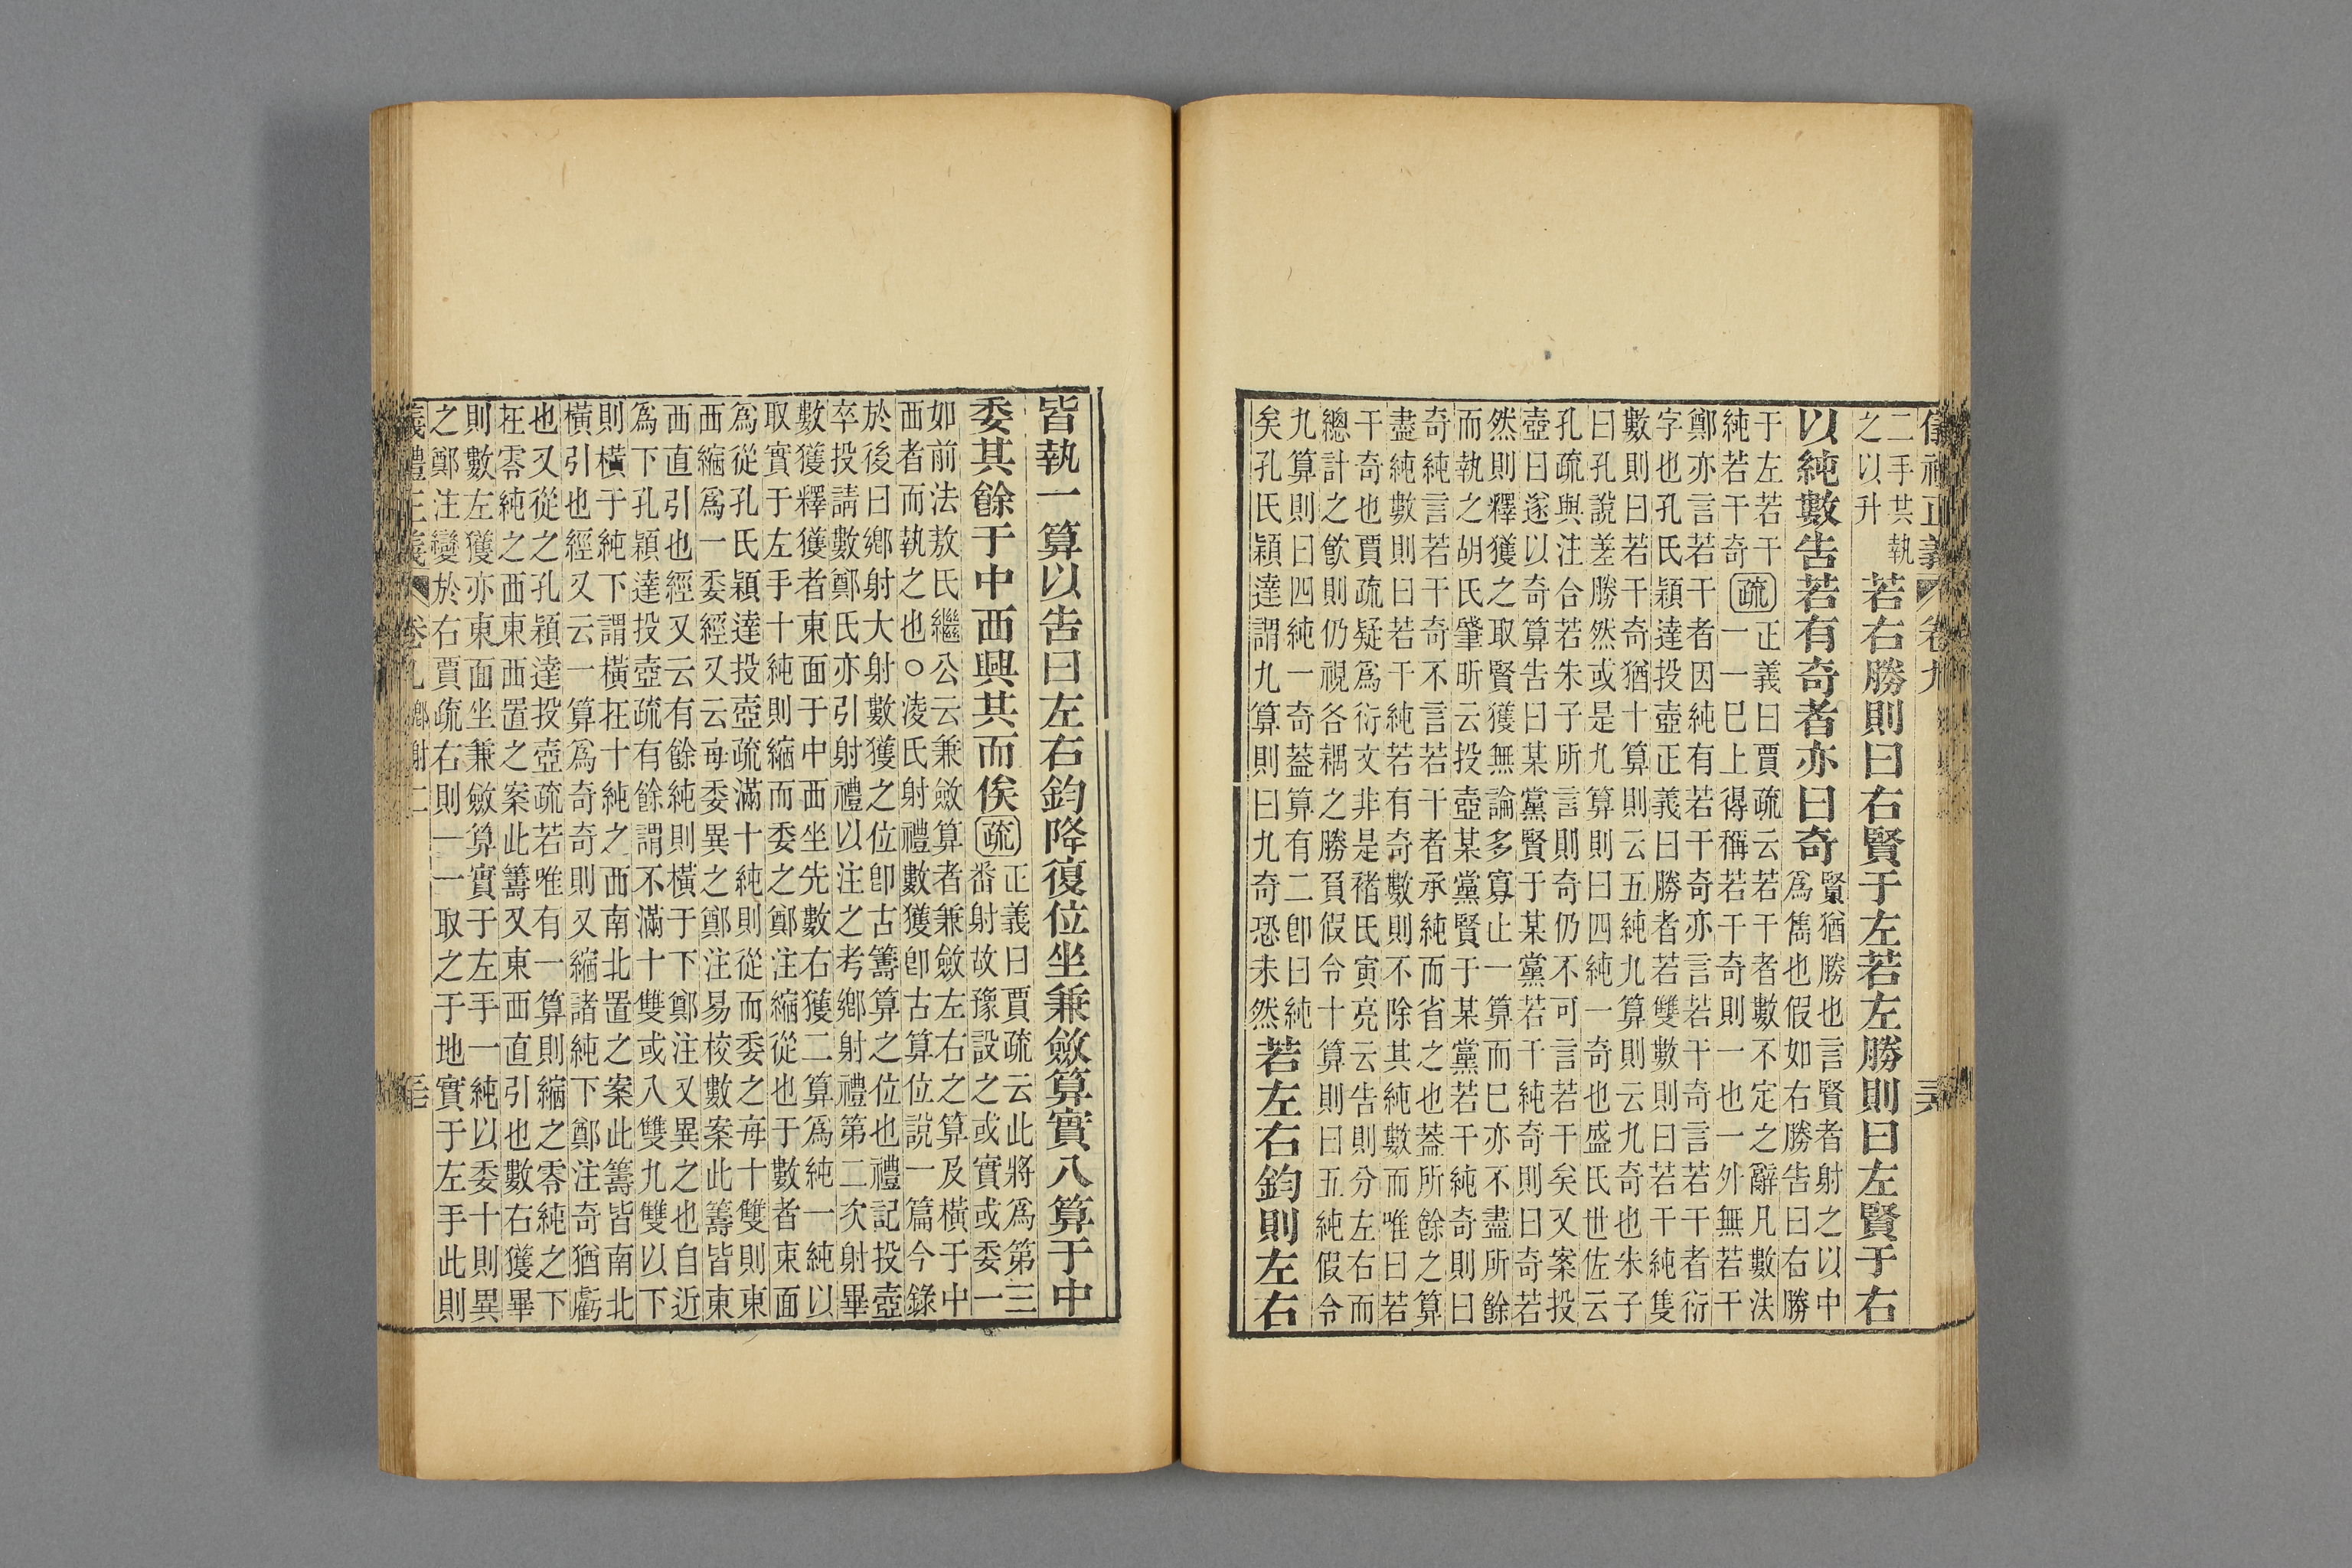 儀禮正義 卷九
二手其執
之以升
若右勝則曰右賢于左若左勝則曰左賢于右
以純數告若有奇者亦曰奇
賢猶勝也言賢者射之以中
爲雋也假如右勝告曰右勝
于左若干
純若干奇
疏
正義曰賈疏云若干者數不定之辭凡數法
一一巳上得稱若干奇則一也一外無若干
鄭亦言若干者因純有若干奇亦言若干奇言若干者衍
字也孔氏穎達投壺正義曰勝者若雙數則曰若干純隻
數則曰若干奇猶十算則云五純九算則云九奇也朱子
曰孔說差勝然或是九算則曰四純一奇也盛氏世佐云
孔疏與注合若朱子所言則奇仍不可言若干矣又案投
壺曰遂以奇算告曰某黨賢于某黨若干純奇則曰奇若
然則釋獲之取賢獲無論多寡止一算而巳亦不盡所餘
而執之胡氏肇昕云投壺某黨賢于某黨若干純奇則曰
奇純言若干奇不言若干者承純而省之也蓋所餘之算
盡純數則曰若干純若有奇數則不除其純數而唯曰若
干奇也賈疏疑爲衍文非是褚氏寅亮云告則分左右而
總計之飲則仍視各耦之勝負假令十算則曰五純假令
九算則曰四純一奇蓋算有二卽曰純
矣孔氏穎達謂九算則曰九奇恐未然
若左右鈞則左右
皆執一算以告曰左右鈞降復位坐兼斂算實八算于中
委其餘于中西興共而俟
疏
正義曰賈疏云此將爲第三
番射故豫設之或實或委一
如前法敖氏繼公云兼斂算者兼斂左右之算及橫于中
西者而執之也○凌氏射禮數獲卽古算位說一篇今錄
於後曰鄉射大射數獲之位卽古籌算之位也禮記投壺
卒投請數鄭氏亦引射禮以注之考鄉射禮第二次射畢
數獲釋獲者東面于中西坐先數右獲二算爲純一純以
取實于左手十純則縮而委之鄭注縮從也于數者東面
爲從孔氏穎達投壺疏滿十純則從而委之每十雙則東
西縮爲一委經又云每委異之鄭注易校數案此籌皆東
西直引也經又云有餘純則橫于下鄭注又異之也自近
爲下孔穎達投壺疏有餘謂不滿十雙或八雙九雙以下
則橫于純下謂橫在十純之西南北置之案此籌皆南北
橫引也經又云一算爲奇奇則又縮諸純下鄭注奇猶虧
也又從之孔穎達投壺疏若唯有一算則縮之零純之下
在零純之西東西置之案此籌又東西直引也數右獲畢
則數左獲亦東面坐兼斂算實于左手一純以委十則異
之鄭注變於右賈疏右則一一取之于地實于左手此則
義禮正義 卷九 鄉射二